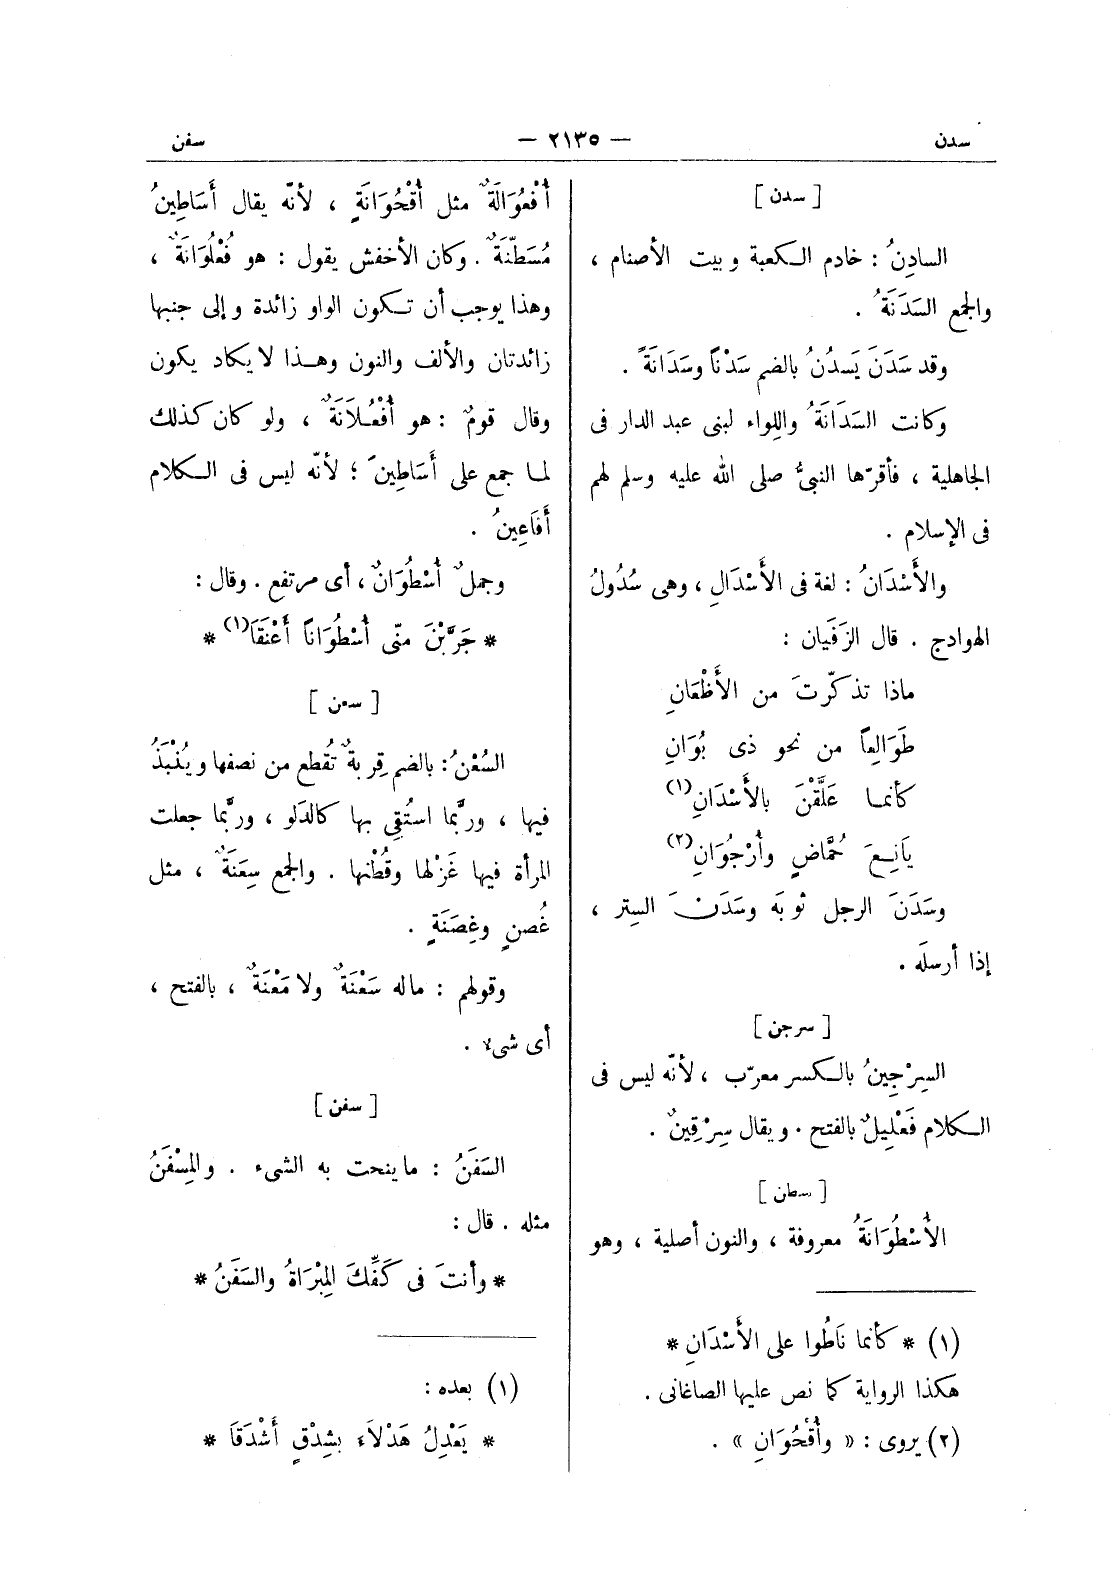 سدن
— ٢١٣٥ —
سفن
[ سدن ]
السادِنُ : خادم الكعبة وبيت الأصنام ،
والجمع السَدَنَةُ .
وقد سَدَنَ يَسدُنُ بالضم سَدْناً وسَدَانَةً .
وكانت السَدَانَةُ واللِواء لبنى عبد الدار فى
الجاهلية ، فأقرّها النبىُّ صلى الله عليه وسلم لهم
فى الإسلام .
والأَسْدَانُ : لغة فى الأَسْدَالِ ، وهى سُدُولُ
الهوادج . قال الزَفَيان :
ماذا تذكّرتَ من الأَظْعَانِ
طَوَالِعاً من نحو ذى بُوَانِ
كأنما عَلَّقْنَ بالأَسْدَانِ(١)
يَانِعَ حُمَّاضٍ وأُرْجُوَانِ(٢)
وسَدَنَ الرجل ثوبَه وسَدَنَ السِتر ،
إذا أرسلَه .
[ سرجن ]
السِرْجِينُ بالكسر معرّب ، لأنّه ليس فى
الكلام فَعْلِيلٌ بالفتح . ويقال سِرْقِينٌ .
[ سطن ]
الأُسْطُوَانَةُ معروفة ، والنون أصلية ، وهو
(١) * كأنما نَاطُوا على الأَسْدَانِ *
هكذا الرواية كما نص عليها الصاغانى .
(٢) يروى : « وأُقْحُوَانِ » .
أُفْعُوَالَةٌ مثل أُقْحُوَانَةٍ ، لأنّه يقال أَسَاطِينُ
مُسَطَّنَةٌ . وكان الأخفش يقول : هو فُعْلُوَانَةٌ ،
وهذا يوجب أن تكون الواو زائدة وإلى جنبها
زائدتان والألف والنون وهذا لا يكاد يكون
وقال قومٌ : هو أُفْعُلَانَةٌ ، ولو كان كذلك
لما جمع على أَسَاطِينَ ؛ لأنّه ليس فى الكلام
أَفَاعِينُ .
وجملٌ أُسْطُوَانٌ ، أى مرتفع . وقال :
* جَرَّبْنَ منّى أُسْطُوَاناً أَعْنَقَا(١) *
[ سعن ]
السُعْنُ : بالضم قِربةٌ تُقطع من نصفها ويُنْبَذُ
فيها ، وربَّما استُقِى بها كالدَلو ، وربَّما جعلت
المرأة فيها غَزْلها وقُطْنها . والجمع سِعَنَةٌ ، مثل
غُصنٍ وغِصَنَةٍ .
وقولهم : ماله سَعْنَةٌ ولا مَعْنَةٌ ، بالفتح ،
أى شىء .
[ سفن ]
السَفَنُ : ما ينحت به الشىء . والمِسْفَنُ
مثله . قال :
* وأنتَ فى كَفِّكَ المِبْرَاةُ والسَفَنُ *
(١) بعده :
* يَعْدِلُ هَدْلَاءَ بشِدْقٍ أَشْدَقَا *